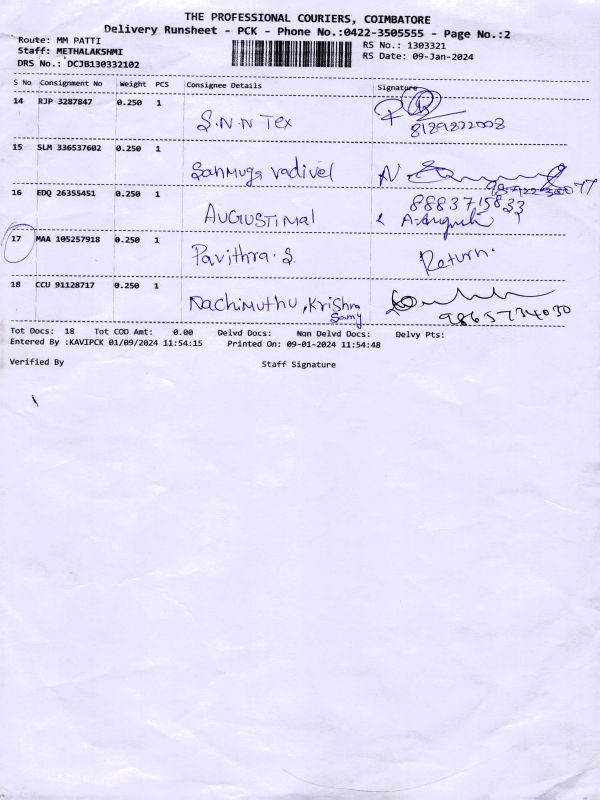 THE PROFESSIONAL COURIERS, COIMBATORE
Delivery Runsheet - PCK - Phone No.:0422-3505555 - Page No.:2
Route: MM PATTI
Staff: METHALAKSHMI
DRS No.: DCJB130332102
RS No.: 1303321
RS Date: 09-Jan-2024
S No Consignment No Weight PCS Consignee Details Signature
14 RJP 3287847 0.250 1 S.N.N Tex
8129822008
15 SLM 336537602 0.250 1 Sanmuga Vadivel
16 EDQ 26355451 0.250 1 AUGUSTIMal 8883715833
17 MAA 105257918 0.250 1 Pavithra.S. Return.
18 CCU 91128717 0.250 1 Nachimuthu, Krishna
Samy 9865734030
Tot Docs: 18 Tot COD Amt: 0.00 Delvd Docs: Non Delvd Docs: Delvy Pts:
Entered By :KAVIPCK 01/09/2024 11:54:15 Printed On: 09-01-2024 11:54:48
Verified By Staff Signature